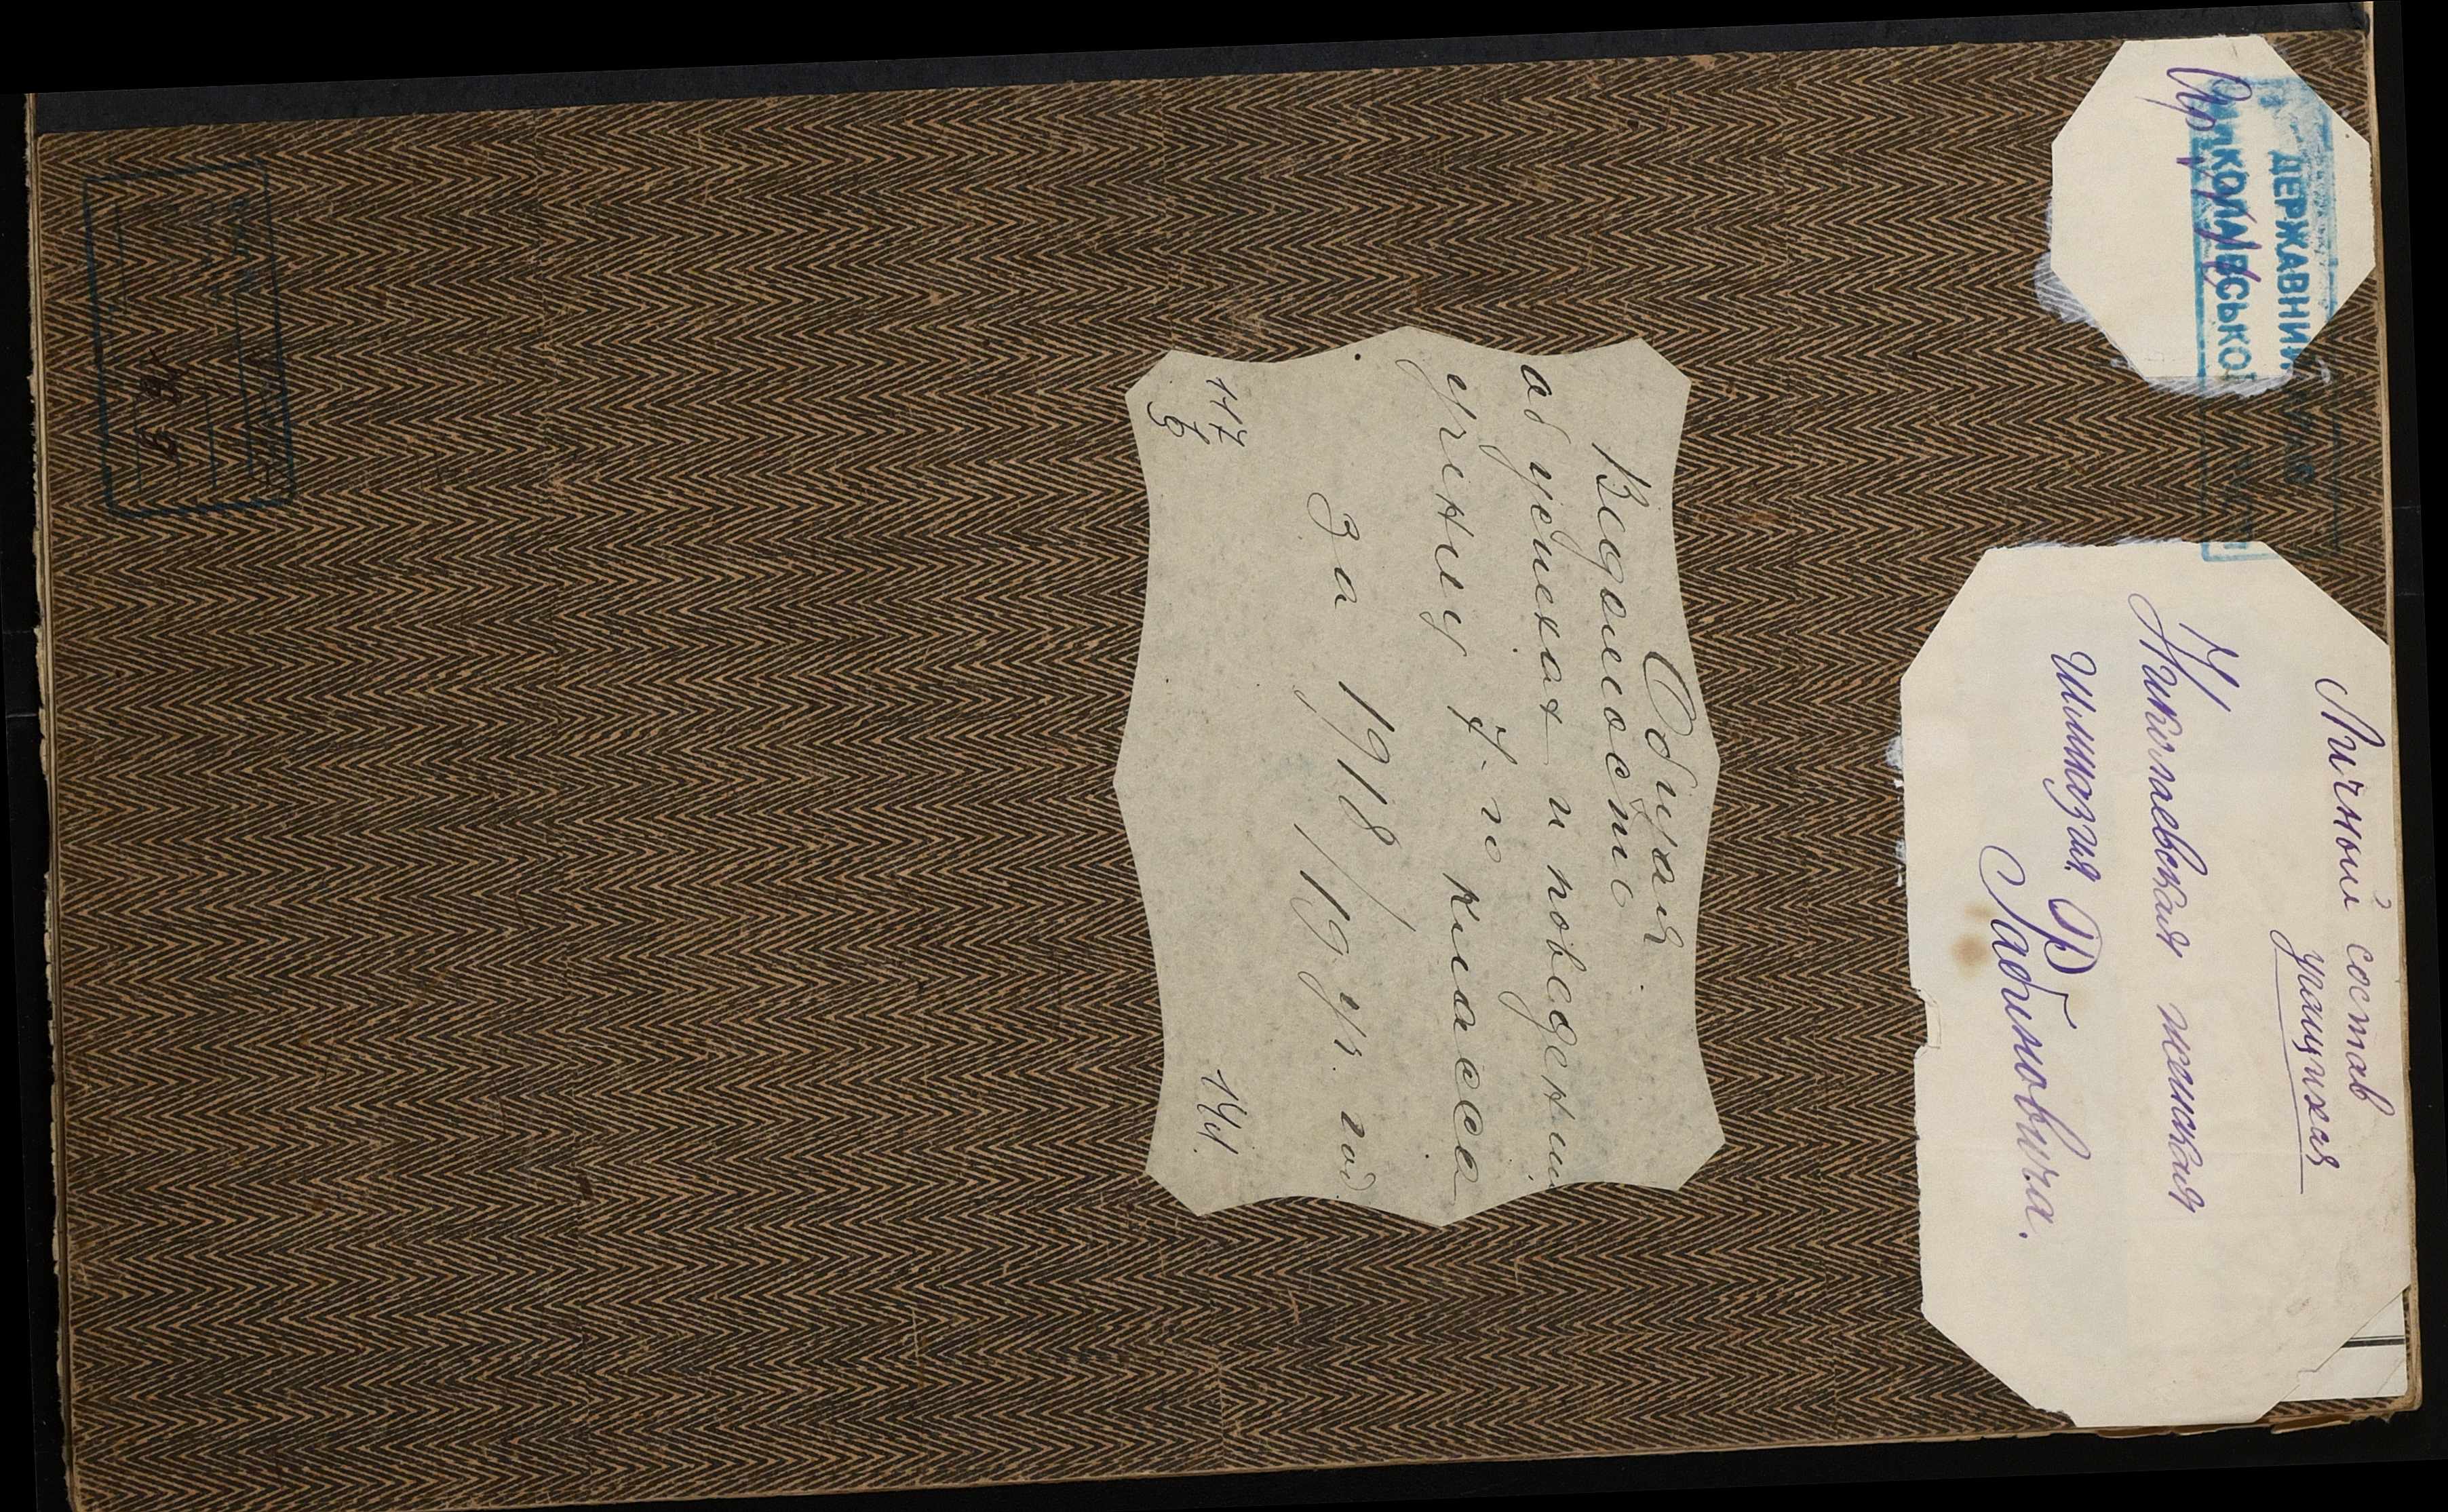 ДЕРЖАВНИЙ
МИКОЛАЇВСЬКОЇ
Личный состав
учащихся
Николаевская женская
гимназия
Рабиновича.
Общая
Ведомость
об успехах и поведении
учениц 7-го класса
за 1918/19 уч. год.
117